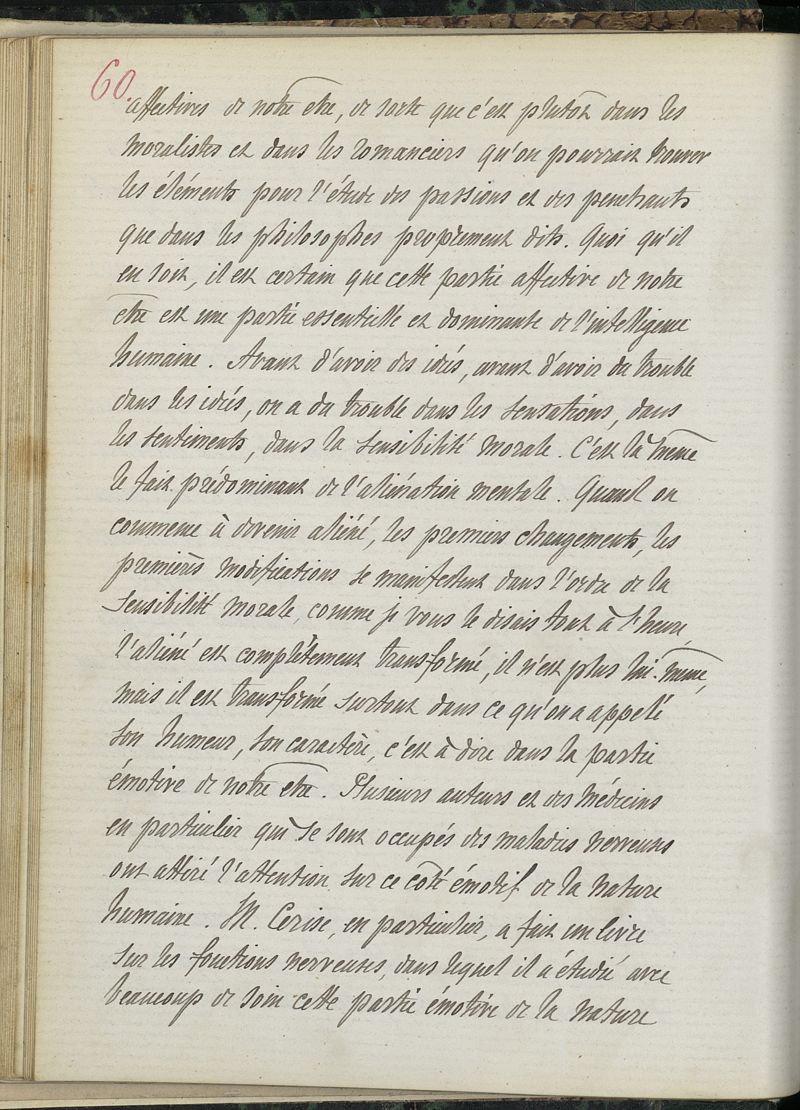 60.
affectives de notre être, de sorte que c'est plutôt dans les
moralistes et dans les romanciers qu'on pourrait trouver
les éléments pour l'étude des passions et des penchants
que dans les philosophes proprement dits. Quoi qu'il
en soit, il est certain que cette partie affective de notre
être est une partie essentielle et dominante de l'intelligence
humaine. Avant d'avoir des idées, avant d'avoir du trouble
dans les idées, on a du trouble dans les sensations, dans
les sentiments, dans la sensibilité morale. C'est là même
le fait prédominant de l'aliénation mentale. Quand on
commence à devenir aliéné, les premiers changements, les
premières modifications se manifestent dans l'ordre de la
sensibilité morale, comme je vous le disais tout à l'heure,
l'aliéné est complètement transformé, il n'est plus lui-même,
mais il est transformé surtout dans ce qu'on a appelé
son humeur, son caractère, c'est à dire dans la partie
émotive de notre être. Plusieurs auteurs et des médecins
en particulier qui se sont occupés des maladies nerveuses
ont attiré l'attention sur ce côté émotif de la nature
humaine. M. Cerise, en particulier, a fait un livre
sur les fonctions nerveuses, dans lequel il a étudié avec
beaucoup de soin cette partie émotive de la nature